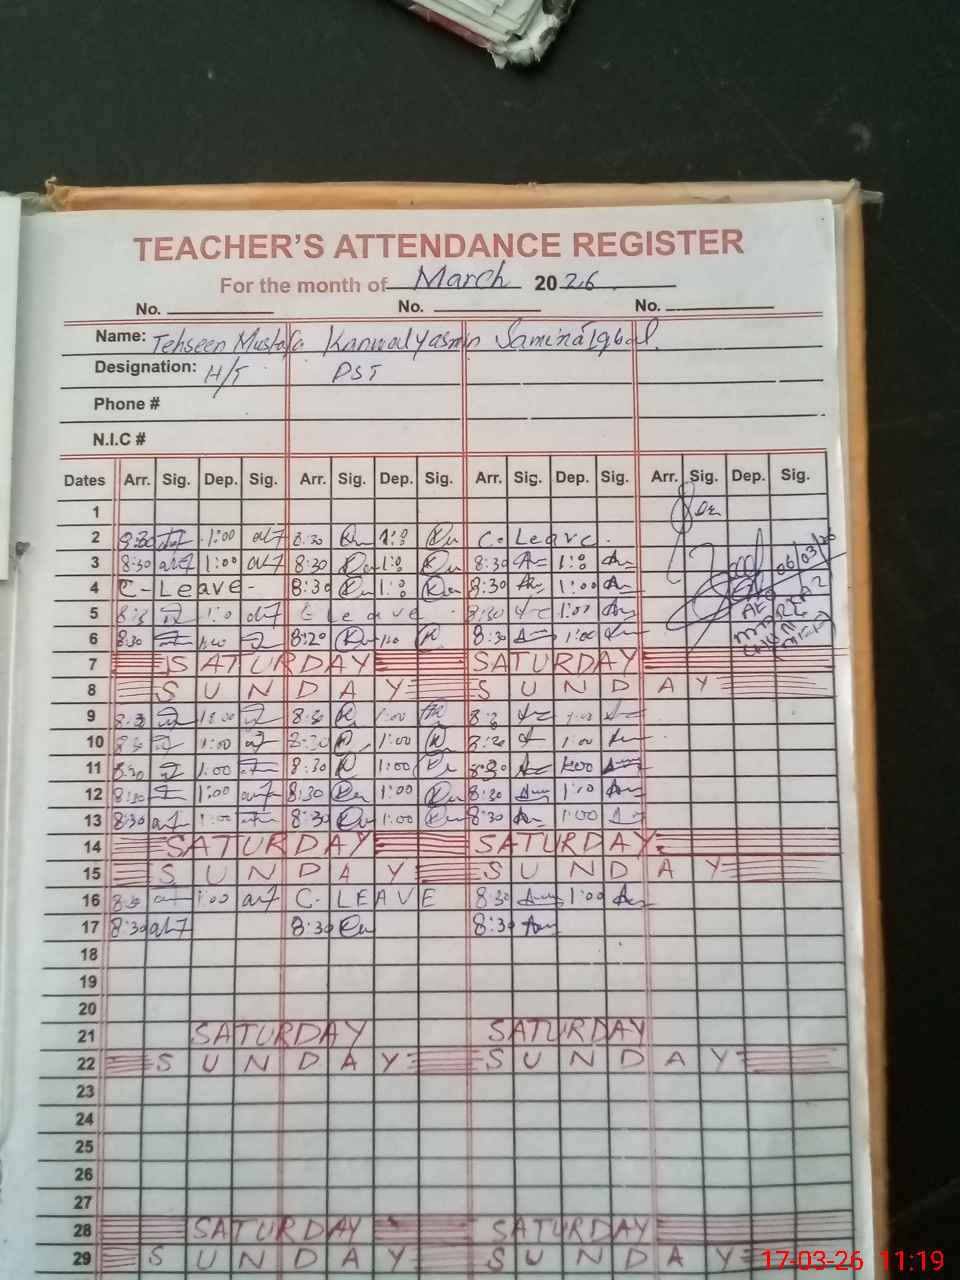 TEACHER'S ATTENDANCE REGISTER
For the month of March 2026
No. No. No.
Name: Tehseen Mustafa Kanwal Yasmin Samina Iqbal
Designation: H/T PST
Phone #
N.I.C #
Dates Arr. Sig. Dep. Sig. Arr. Sig. Dep. Sig. Arr. Sig. Dep. Sig. Arr. Sig. Dep. Sig.
1
2 8:30 1:00 8:30 1:0 C. Leave.
3 8:30 1:00 8:30 1:0 8:30 1:0
06/03/26
4 C-Leave- 8:30 1:0 8:30 1:00
5 8:30 1:0 C Leave 8:30 1:00
6 8:30 8:20 8:30 1:00
7 SATURDAY SATURDAY
8 SUNDAY SUNDAY
9 8:30 1:00 8:30 1:00
10 8:30 1:00 8:30 1:00 1:00
11 8:30 1:00 8:30 1:00 8:30 1:00
12 8:30 1:00 8:30 1:00 8:30
13 8:30 1:00 8:30 1:00 8:30 1:00
14 SATURDAY SATURDAY
15 SUNDAY SUNDAY
16 8:30 1:00 C. LEAVE 8:30 1:00
17 8:30 8:30 8:30
18
19
20
21 SATURDAY SATURDAY
22 SUNDAY SUNDAY
23
24
25
26
27
28 SATURDAY SATURDAY
29 SUNDAY SUNDAY
17-03-26 11:19